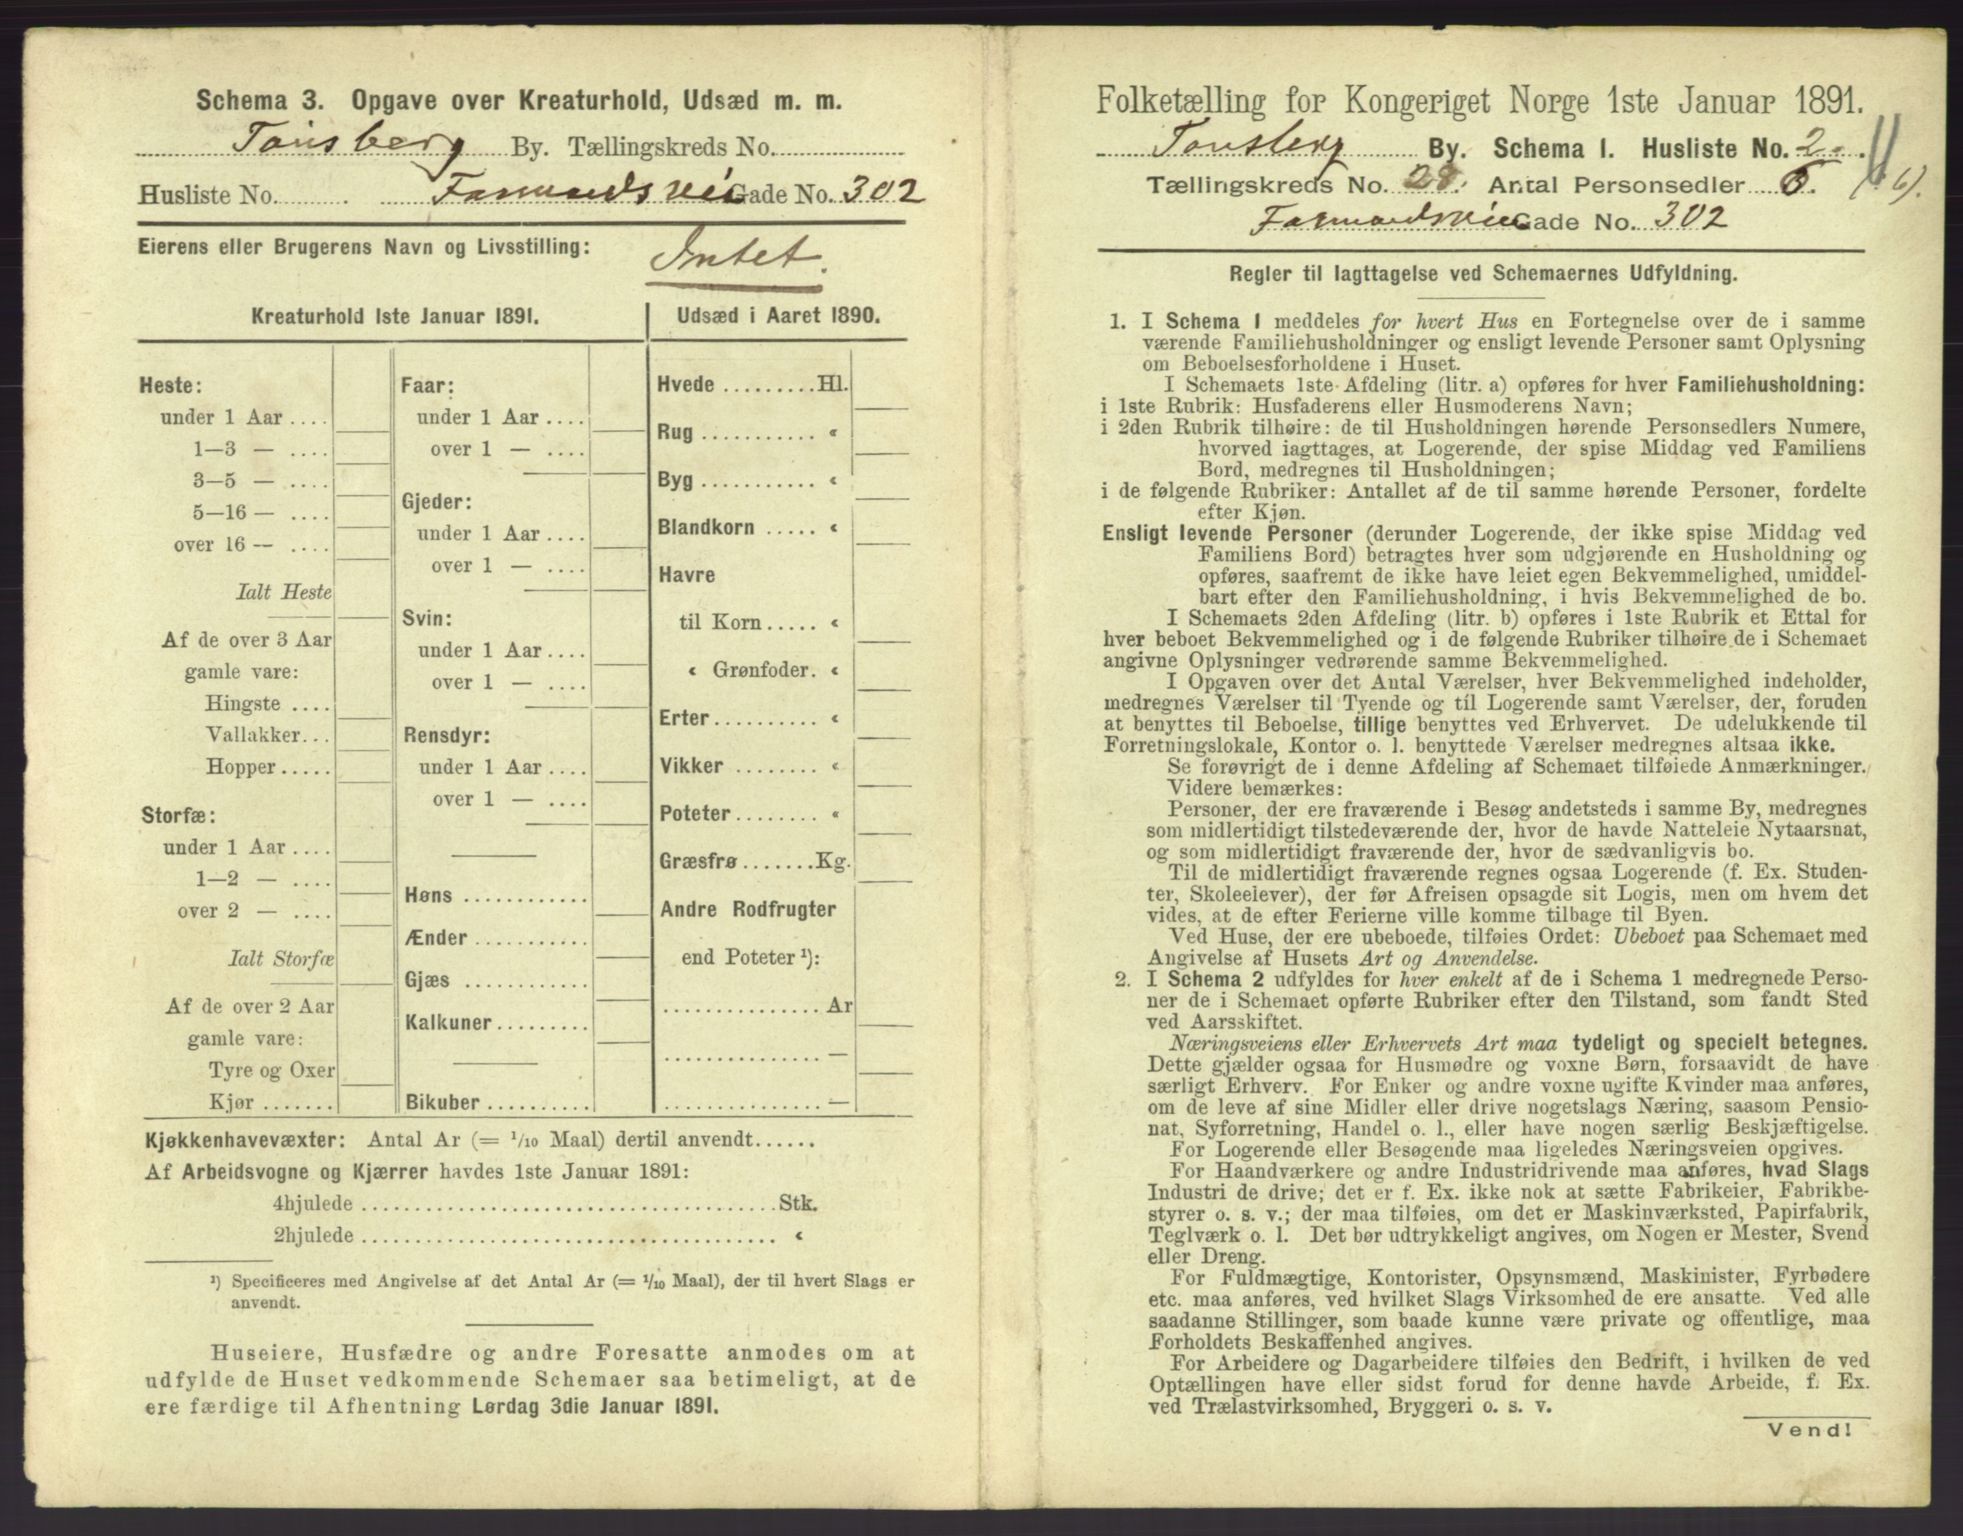 Schema 3. Opgave over Kreaturhold, Udsæd m. m.
Tønsberg By. Tællingskreds No.
Husliste No. Farmandsvei Gade No. 302
Eierens eller Brugerens Navn og Livsstilling: Intet.
Kreaturhold 1ste Januar 1891.
Heste:
under 1 Aar ....
1—3 — ....
3—5 — ....
5—16 — ....
over 16 — ....
Ialt Heste
Af de over 3 Aar
gamle vare:
Hingste ....
Vallakker...
Hopper.....
Storfæ:
under 1 Aar ....
1—2 — ....
over 2 — ....
Ialt Storfæ
Af de over 2 Aar
gamle vare:
Tyre og Oxer
Kjør .......
Faar:
under 1 Aar ....
over 1 — ....
Gjeder:
under 1 Aar ....
over 1 — ....
Svin:
under 1 Aar ....
over 1 — ....
Rensdyr:
under 1 Aar ....
over 1 — ....
Høns ............
Ænder ...........
Gjæs ............
Kalkuner.........
Bikuber..........
Udsæd i Aaret 1890.
Hvede .........Hl.
Rug ........... «
Byg ........... «
Blandkorn ..... «
Havre
til Korn..... «
« Grønfoder. «
Erter.......... «
Vikker ........ «
Poteter........ «
Græsfrø.......Kg.
Andre Rodfrugter
end Poteter ¹):
...............Ar
............... —
............... —
Kjøkkenhavevæxter: Antal Ar (= 1/10 Maal) dertil anvendt......
Af Arbeidsvogne og Kjærrer havdes 1ste Januar 1891:
4hjulede ........................................Stk.
2hjulede ........................................ «
¹) Specificeres med Angivelse af det Antal Ar (= 1/10 Maal), der til hvert Slags er
anvendt.
Huseiere, Husfædre og andre Foresatte anmodes om at
udfylde de Huset vedkommende Schemaer saa betimeligt, at de
ere færdige til Afhentning Lørdag 3die Januar 1891.
Folketælling for Kongeriget Norge 1ste Januar 1891.
Tønsberg By. Schema I. Husliste No. 2.
Tællingskreds No. 28. Antal Personsedler 6. (6).
Farmandsveien Gade No. 302
Regler til Iagttagelse ved Schemaernes Udfyldning.
1. I Schema I meddeles for hvert Hus en Fortegnelse over de i samme
værende Familiehusholdninger og ensligt levende Personer samt Oplysning
om Beboelsesforholdene i Huset.
I Schemaets 1ste Afdeling (litr. a) opføres for hver Familiehusholdning:
i 1ste Rubrik: Husfaderens eller Husmoderens Navn;
i 2den Rubrik tilhøire: de til Husholdningen hørende Personsedlers Numere,
hvorved iagttages, at Logerende, der spise Middag ved Familiens
Bord, medregnes til Husholdningen;
i de følgende Rubriker: Antallet af de til samme hørende Personer, fordelte
efter Kjøn.
Ensligt levende Personer (derunder Logerende, der ikke spise Middag ved
Familiens Bord) betragtes hver som udgjørende en Husholdning og
opføres, saafremt de ikke have leiet egen Bekvemmelighed, umiddel-
bart efter den Familiehusholdning, i hvis Bekvemmelighed de bo.
I Schemaets 2den Afdeling (litr. b) opføres i 1ste Rubrik et Ettal for
hver beboet Bekvemmelighed og i de følgende Rubriker tilhøire de i Schemaet
angivne Oplysninger vedrørende samme Bekvemmelighed.
I Opgaven over det Antal Værelser, hver Bekvemmelighed indeholder,
medregnes Værelser til Tyende og til Logerende samt Værelser, der, foruden
at benyttes til Beboelse, tillige benyttes ved Erhvervet. De udelukkende til
Forretningslokale, Kontor o. l. benyttede Værelser medregnes altsaa ikke.
Se forøvrigt de i denne Afdeling af Schemaet tilføiede Anmærkninger.
Videre bemærkes:
Personer, der ere fraværende i Besøg andetsteds i samme By, medregnes
som midlertidigt tilstedeværende der, hvor de havde Natteleie Nytaarsnat,
og som midlertidigt fraværende der, hvor de sædvanligvis bo.
Til de midlertidigt fraværende regnes ogsaa Logerende (f. Ex. Studen-
ter, Skoleelever), der før Afreisen opsagde sit Logis, men om hvem det
vides, at de efter Ferierne ville komme tilbage til Byen.
Ved Huse, der ere ubeboede, tilføies Ordet: Ubeboet paa Schemaet med
Angivelse af Husets Art og Anvendelse.
2. I Schema 2 udfyldes for hver enkelt af de i Schema 1 medregnede Perso-
ner de i Schemaet opførte Rubriker efter den Tilstand, som fandt Sted
ved Aarsskiftet.
Næringsveiens eller Erhvervets Art maa tydeligt og specielt betegnes.
Dette gjælder ogsaa for Husmødre og voxne Børn, forsaavidt de have
særligt Erhverv. For Enker og andre voxne ugifte Kvinder maa anføres,
om de leve af sine Midler eller drive nogetslags Næring, saasom Pensio-
nat, Syforretning, Handel o. l., eller have nogen særlig Beskjæftigelse.
For Logerende eller Besøgende maa ligeledes Næringsveien opgives.
For Haandværkere og andre Industridrivende maa anføres, hvad Slags
Industri de drive; det er f. Ex. ikke nok at sætte Fabrikeier, Fabrikbe-
styrer o. s. v.; der maa tilføies, om det er Maskinværksted, Papirfabrik,
Teglværk o. l. Det bør udtrykkeligt angives, om Nogen er Mester, Svend
eller Dreng.
For Fuldmægtige, Kontorister, Opsynsmænd, Maskinister, Fyrbødere
etc. maa anføres, ved hvilket Slags Virksomhed de ere ansatte. Ved alle
saadanne Stillinger, som baade kunne være private og offentlige, maa
Forholdets Beskaffenhed angives.
For Arbeidere og Dagarbeidere tilføies den Bedrift, i hvilken de ved
Optællingen have eller sidst forud for denne havde Arbeide, f. Ex.
ved Trælastvirksomhed, Bryggeri o. s. v.
Vend!